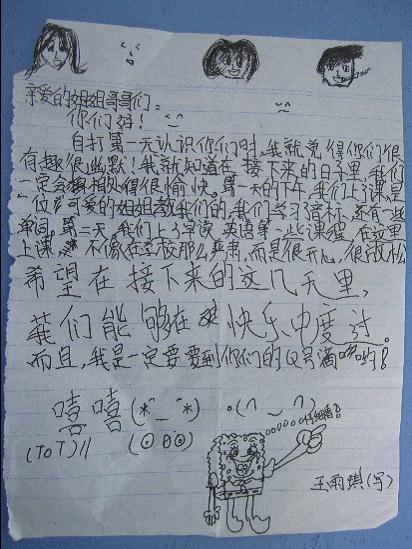 亲爱的姐姐哥哥们：
你们好！
自打第一天认识你们时，我就觉得你们很
有趣很幽默！我就知道在接下来的日子里，我们
一定会相处得很愉快。第一天的下午，我们上了课，是
一位可爱的姐姐教我们的，我们学习音标，还有一些
单词。第二天，我们上了英语第一些课程 在这里
上课 不像在学校那么严肃，而是很开心，很放松
希望在接下来的这几天里，
我们能够在快乐中度过。
而且，我是一定要要到你们的QQ号滴哟！
嘻嘻(*^_^*) •(∩_∩)
(ToT)//
仔细看？
王雨琪(写)